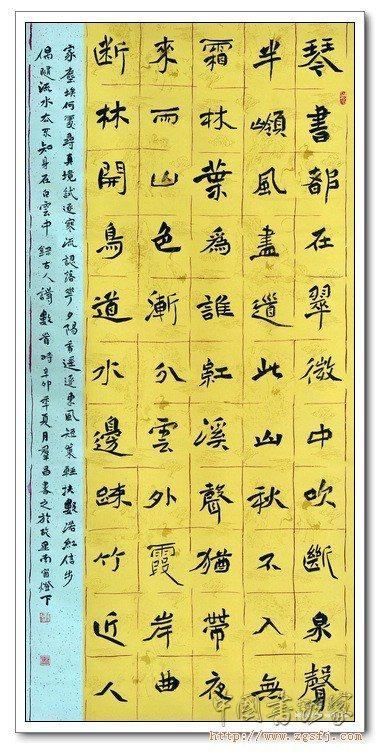 琴書都在翠微中吹斷泉聲
半嶺風盡道此山秋不入無
霜林葉為誰紅溪聲猶帶夜
來雨山色漸分雲外霞岸曲
断林開鳥道水邊疎竹近人
家塵埃何處尋真境試逐寒流認落花夕陽香逕逐東風短策輕扶數落紅信步
偶隨流水去不知身在白雲中 錄古人詩數首時辛卯季夏月群昌書之於故里南窗燈下
中國書法家
www.zgsfj.com